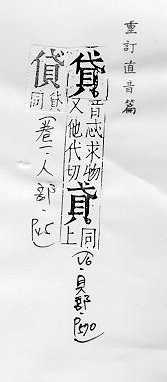 重訂直音篇
貸音忒求物
又他代切
貣同
上
(V6·貝部·P590)
同
(卷一·人部·P45)